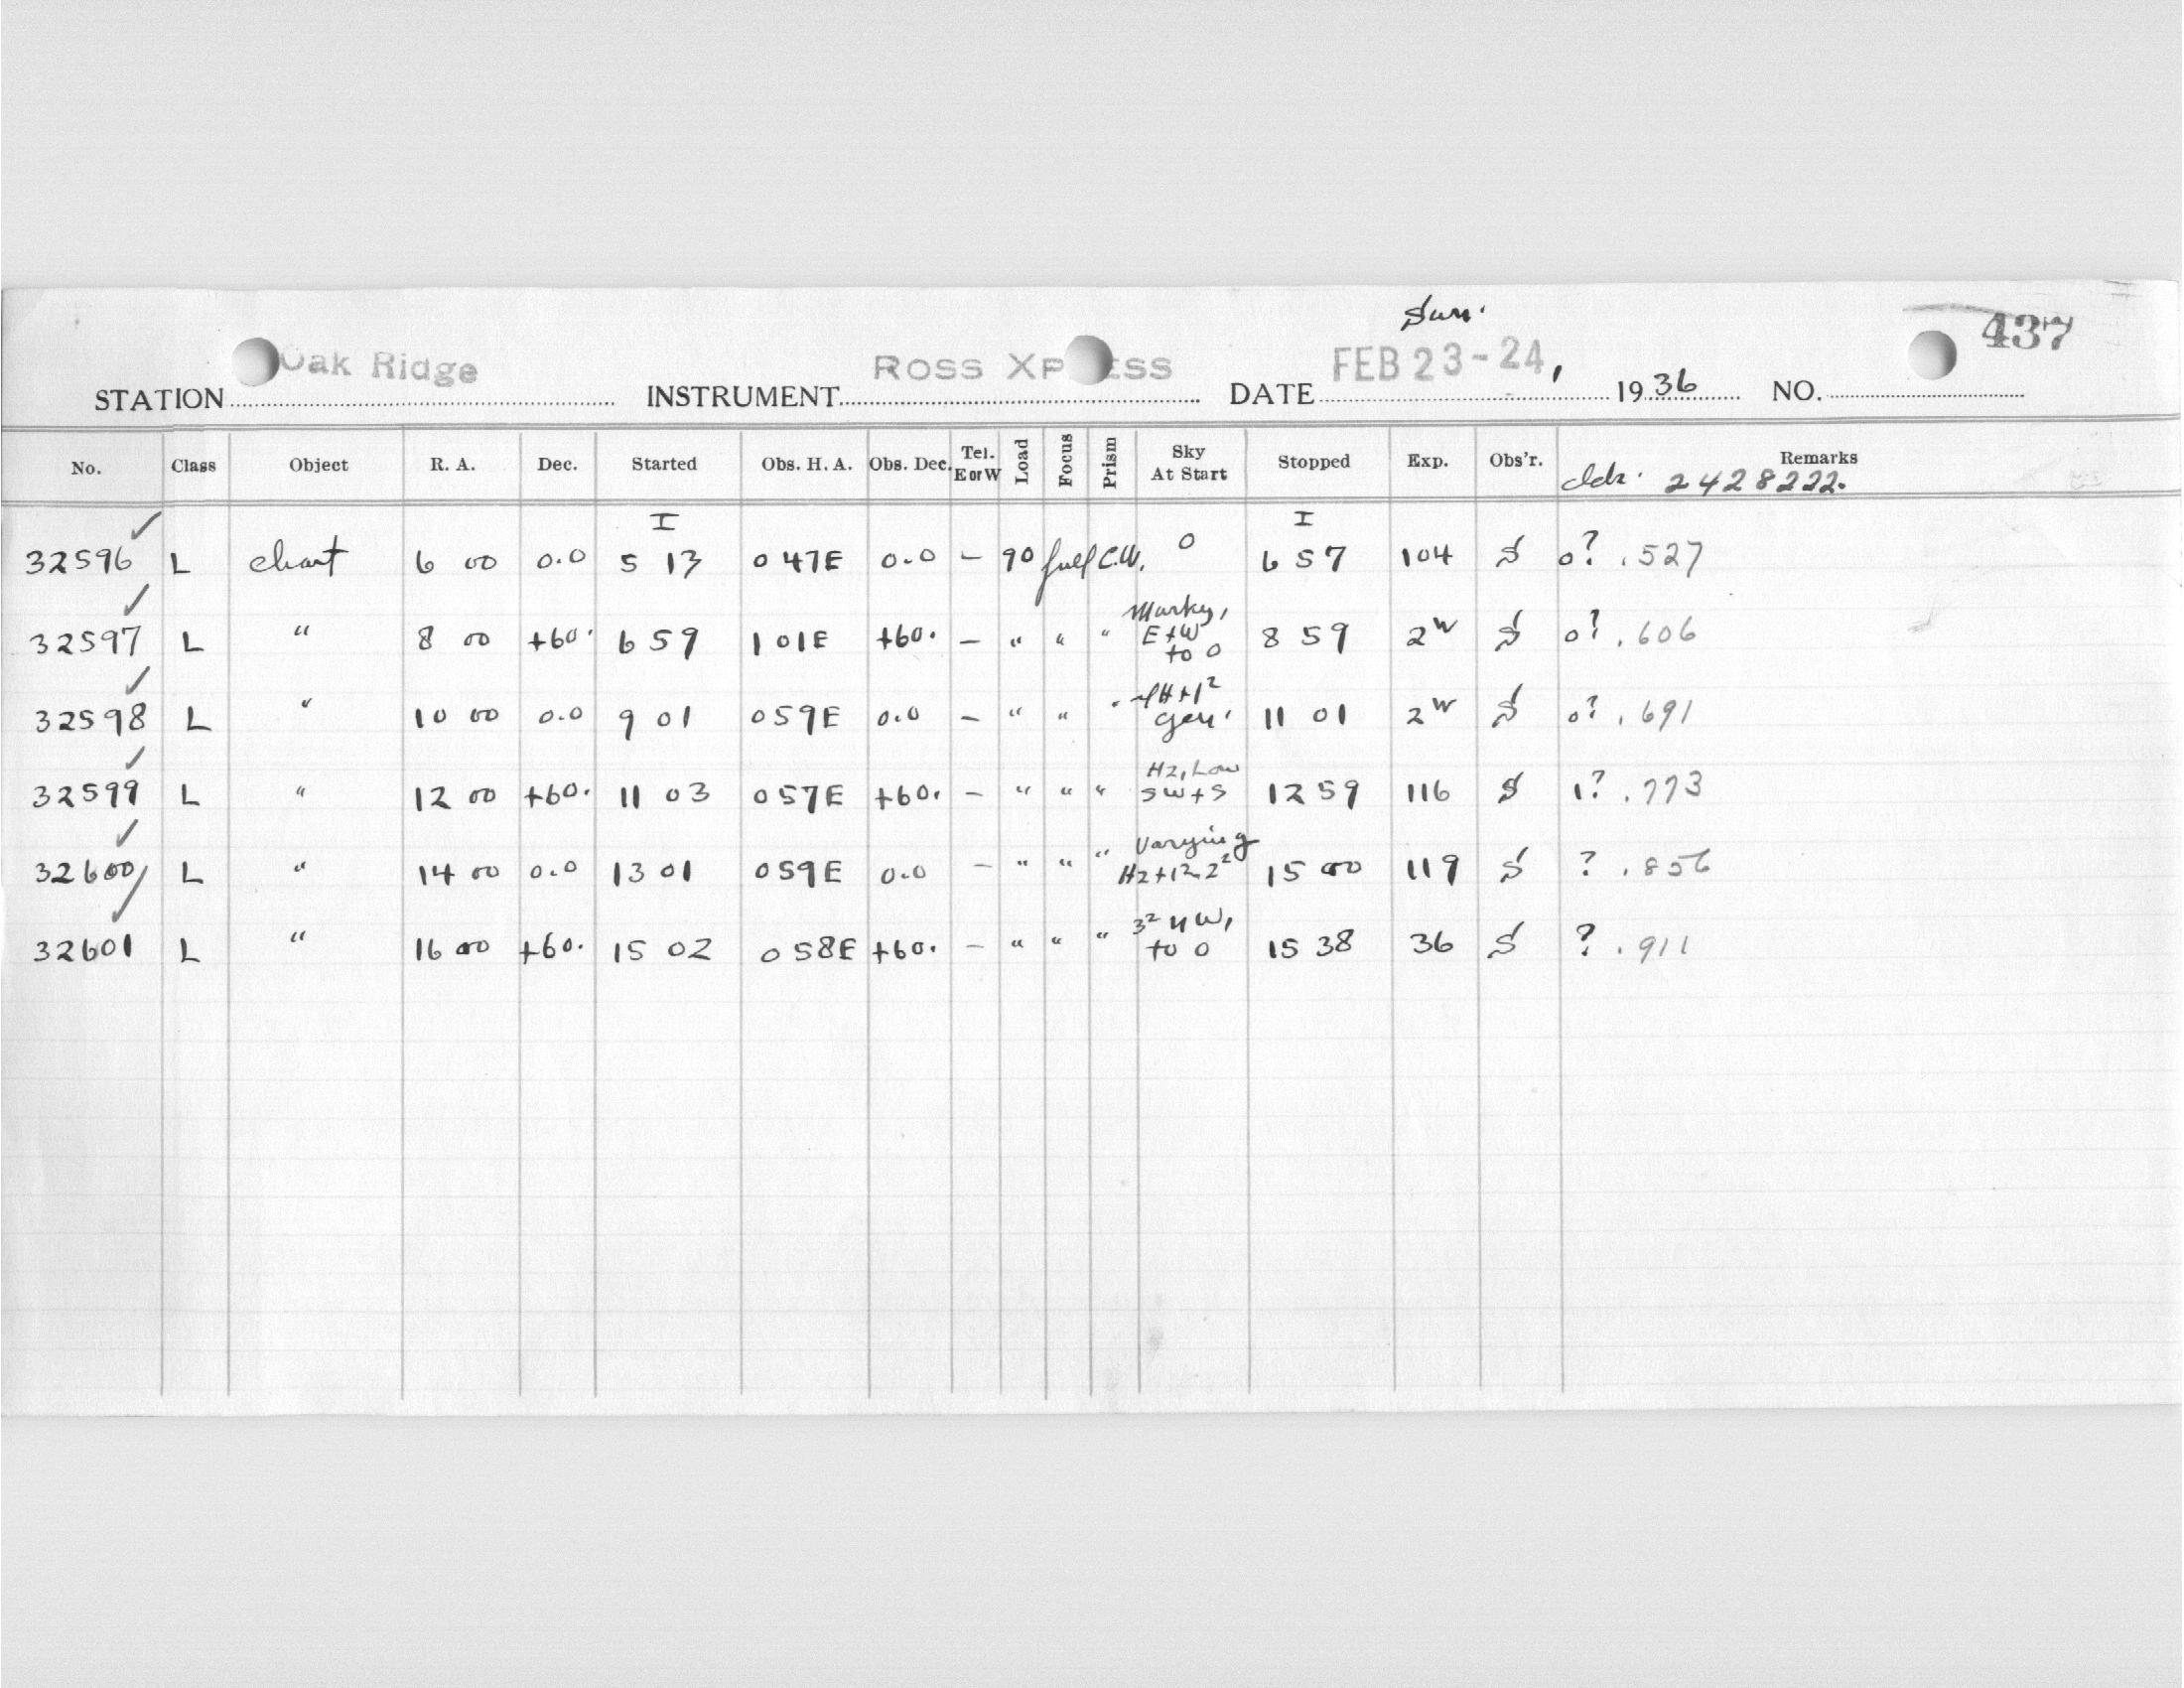 Sun.
437
Oak Ridge ROSS XPRESS FEB 23-24,
STATION INSTRUMENT DATE 1936 NO.
No. Class Object R. A. Dec. Started Obs. H. A. Obs. Dec. Tel. E or W Load Focus Prism Sky At Start Stopped Exp. Obs'r. Remarks
2428222.
I I
32596 L chart 6 00 0.0 5 13 0 47E 0.0 – 90 full C.W. 0 6 57 104 S 0? .527
32597 L " 8 00 +60. 6 59 1 01E +60. – " " " Murky, E+W to 0 8 59 2w S 0? .606
32598 L " 10 00 0.0 9 01 0 59E 0.0 – " " " 11 01 2w S 0? .691
32599 L " 12 00 +60. 11 03 0 57E +60. – " " " Hz, Low SW+S 12 59 116 S 1? .773
32600 L " 14 00 0.0 13 01 0 59E 0.0 – " " " Varying Hz+1²-2² 15 00 119 S ? .856
32601 L " 16 00 +60. 15 02 0 58E +60. – " " " 3² NW, to 0 15 38 36 S ? .911